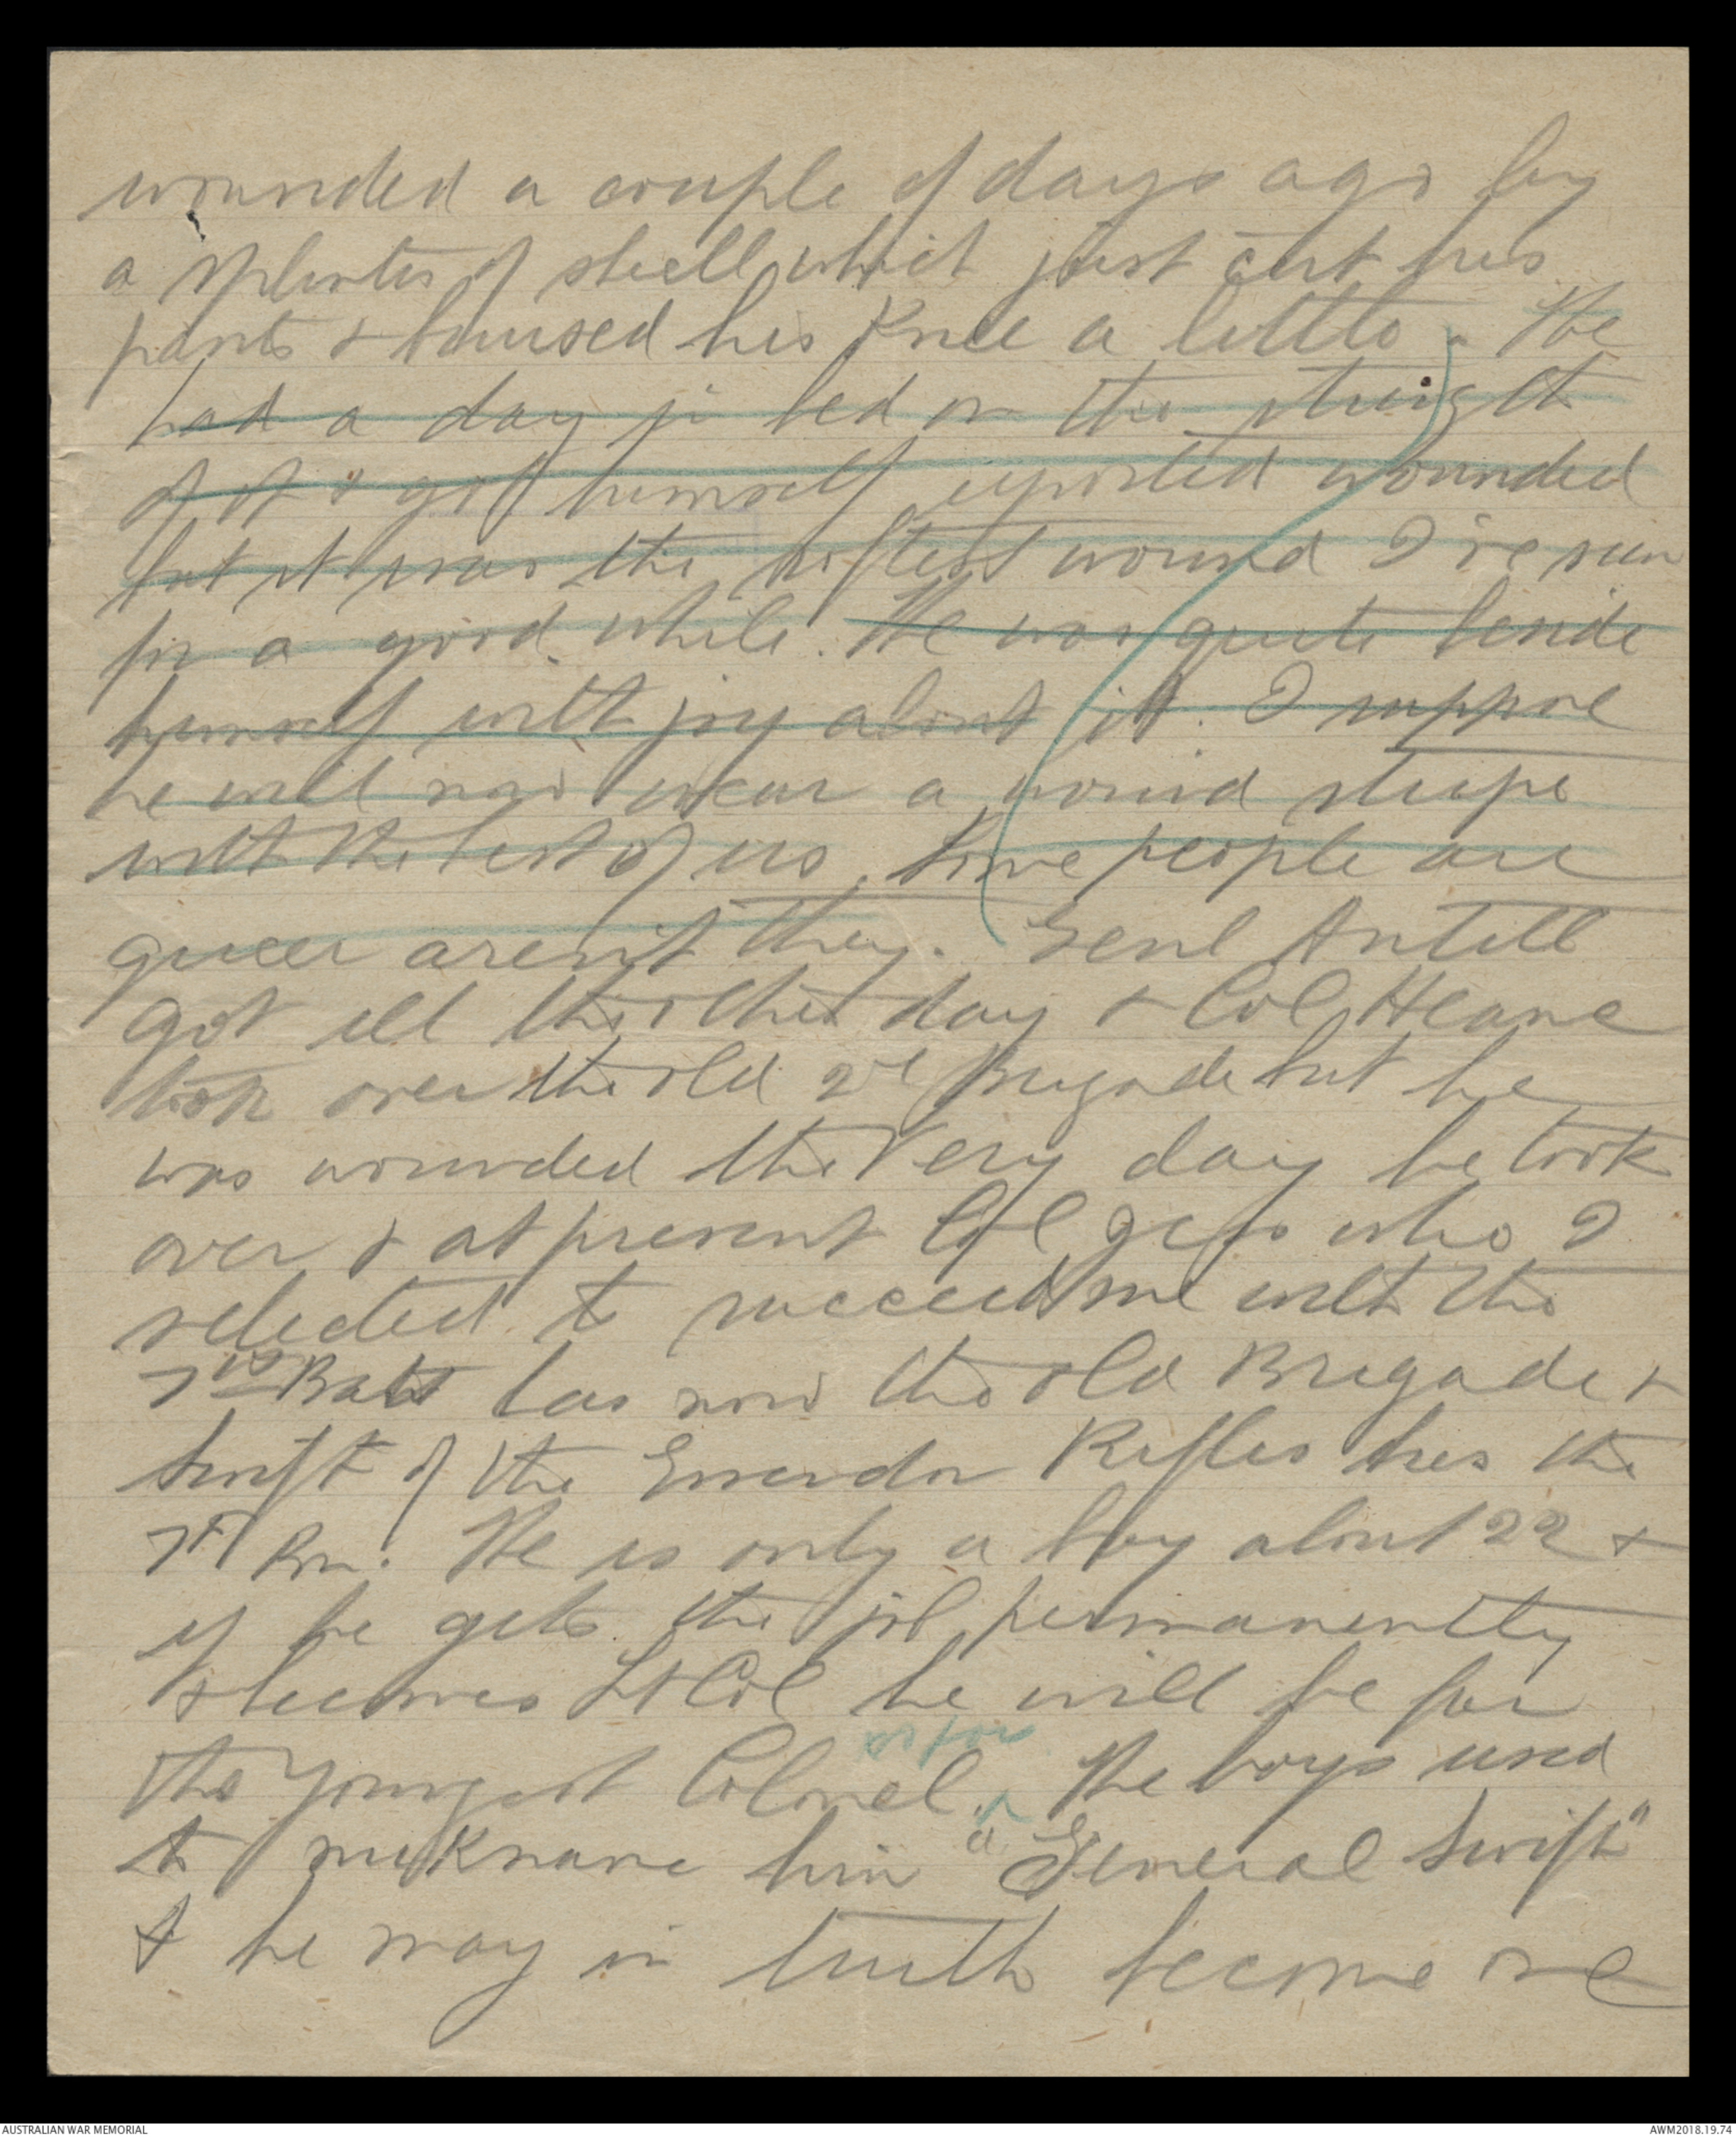 wounded a couple of days ago by
a splinter of shell which just cut his
pants & bruised his knee a little. He
had a day in bed on the strength
of it & got himself reported wounded
but it was the softest wound I've seen
for a good while. He was quite beside
himself with joy about it. I suppose
he will now wear a wound stripe
with the best of us. Some people are
queer aren't they. Genl Antill
got ill the other day & Col Heane
took over the old 2nd Brigade but he
was wounded the very day he took
over & at present Col Jess who I
selected to succeed me with the
7th Batt has now the old Brigade &
Swift of the Essendon Rifles has the
7th Bn. He is only a boy about 22 &
if he gets the job permanently
& becomes Lt Col he will be far
the youngest Colonel. The boys used
to nickname him "General Swift"
& he may in truth become one
AUSTRALIAN WAR MEMORIAL
AWM2018.19.74